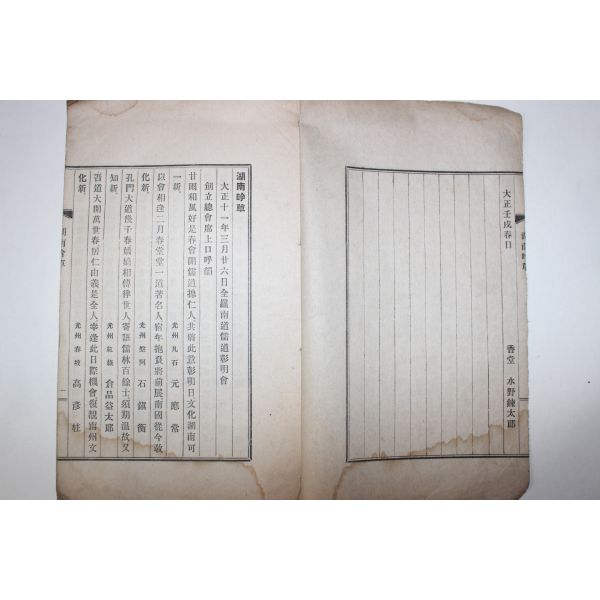 大正壬戌春日
香堂 水野鍊太郎
湖南吟草
大正十一年三月廿六日全羅南道儒道彰明會
創立總會席上口呼韻
甘雨和風好是春會開儒道揔仁人共將此意彰明日文化湖南可
一新 光州 凡石 元應常
以會相逢二月春堂堂一道著名人宿年抱負將前展南國從今敢
化新 光州 石鎭衡
孔門大道幾千春嫡嫡相傳律世人寄語儒林百餘士須期溫故又
知新 光州 倉品益太郎
吾道大開萬世春居仁由義是全人幸逢此日際機會復覩南州文
化新 光州 春坡 高彥柱
一